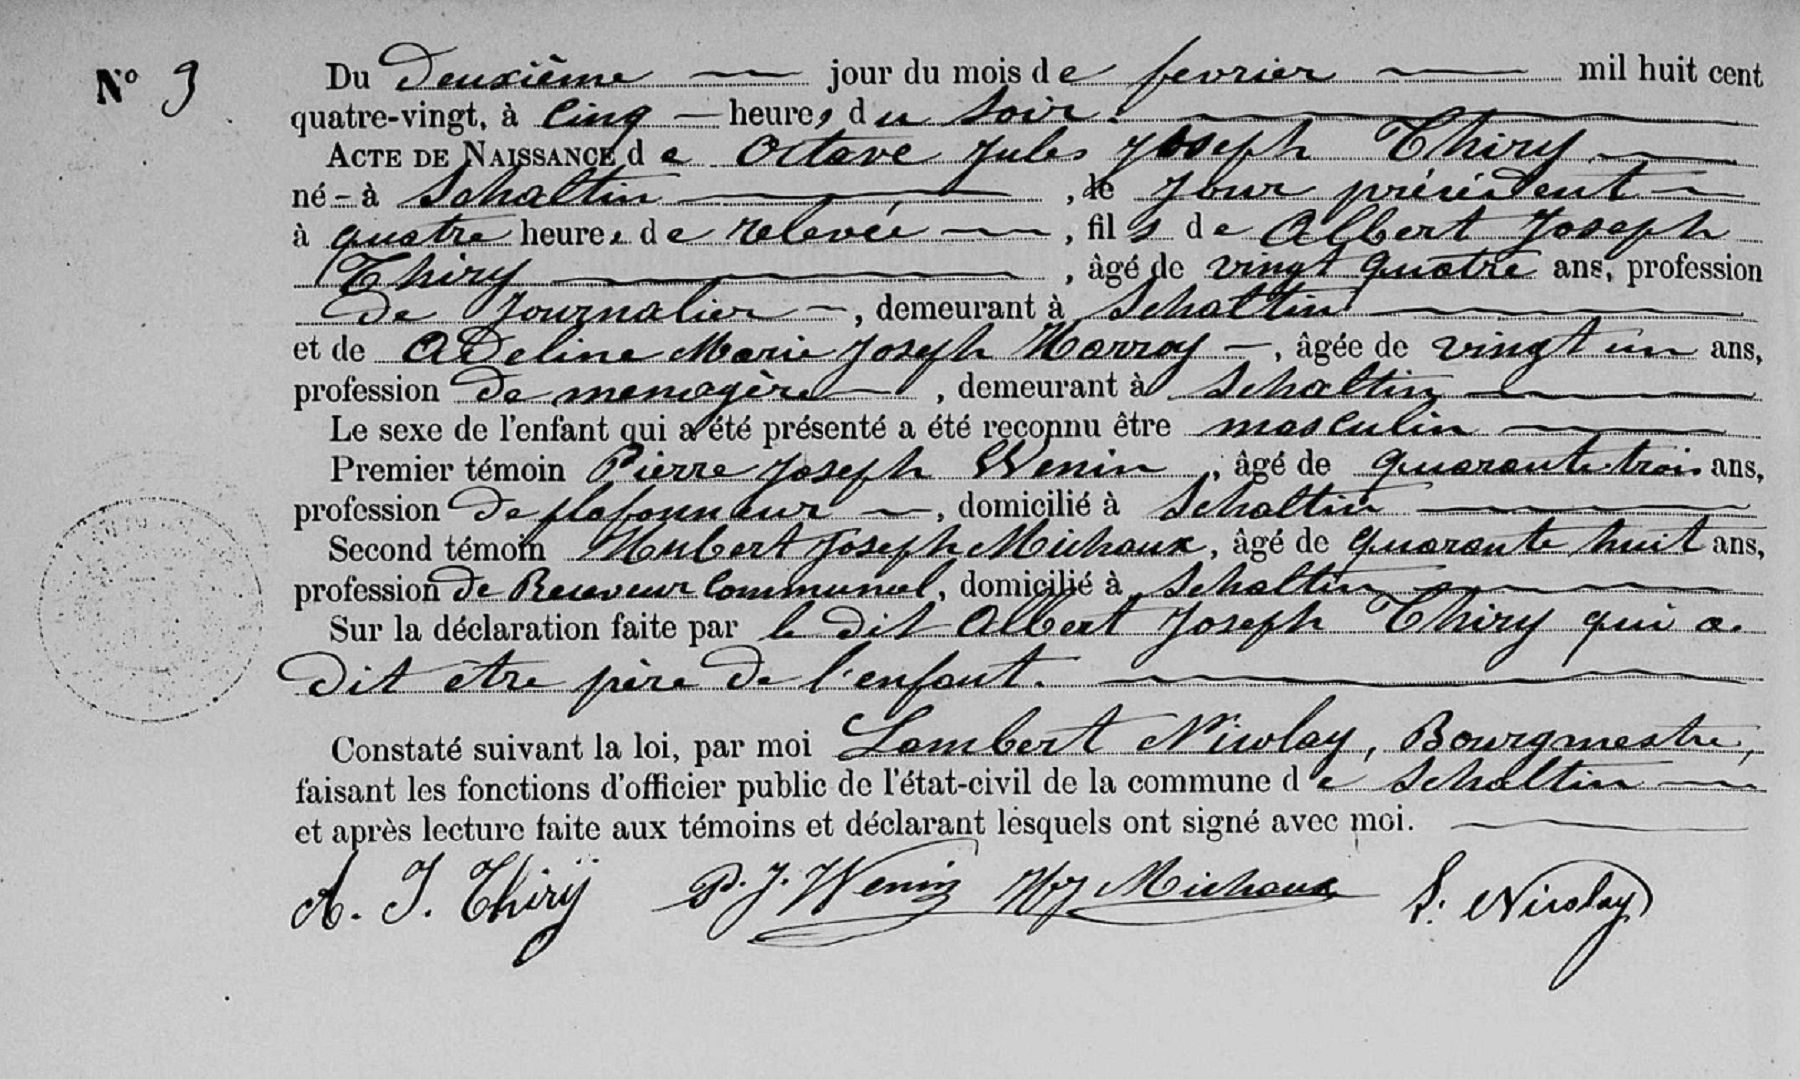 N° 3 Du Deuxième jour du mois de fevrier mil huit cent
quatre-vingt, à Cinq heures du Soir.
ACTE DE NAISSANCE de Octave Jules Joseph Thiry
né à Schaltin, le jour précédent
à quatre heures de relevée, fils de Albert Joseph
Thiry, âgé de vingt quatre ans, profession
de Journalier, demeurant à Schaltin
et de Adeline Marie Joseph Harroy, âgée de vingt un ans,
profession de menagère, demeurant à Schaltin
Le sexe de l'enfant qui a été présenté a été reconnu être masculin
Premier témoin Pierre Joseph Wenin, âgé de quarante trois ans,
profession de plafonneur, domicilié à Schaltin
Second témoin Hubert Joseph Michaux, âgé de quarante huit ans,
profession de Receveur Communal, domicilié à Schaltin
Sur la déclaration faite par le dit Albert Joseph Thiry qui a
dit être père de l'enfant.
Constaté suivant la loi, par moi Lambert Nicolay, Bourgmestre,
faisant les fonctions d'officier public de l'état-civil de la commune de Schaltin
et après lecture faite aux témoins et déclarant lesquels ont signé avec moi.
A. J. Thirÿ P. J. Wenin HJ Michaux L. Nicolay